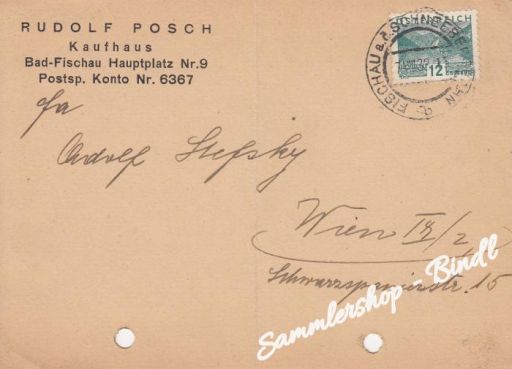 RUDOLF POSCH
Kaufhaus
Bad-Fischau Hauptplatz Nr.9
Postsp. Konto Nr. 6367
FISCHAU a.d. SCHNEEBERGBAHN
12
Fa
Adolf Stefsky
Wien IX/2
Schwarzspanierstr. 15
Sammlershop - Bindl